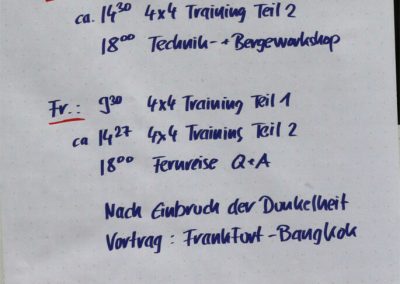 ca. 14³⁰ 4x4 Training Teil 2
18⁰⁰ Technik- + Bergeworkshop
Fr.: 9³⁰ 4x4 Training Teil 1
ca 14²⁷ 4x4 Training Teil 2
18⁰⁰ Fernreise Q+A
Nach Einbruch der Dunkelheit
Vortrag: Frankfurt-Bangkok